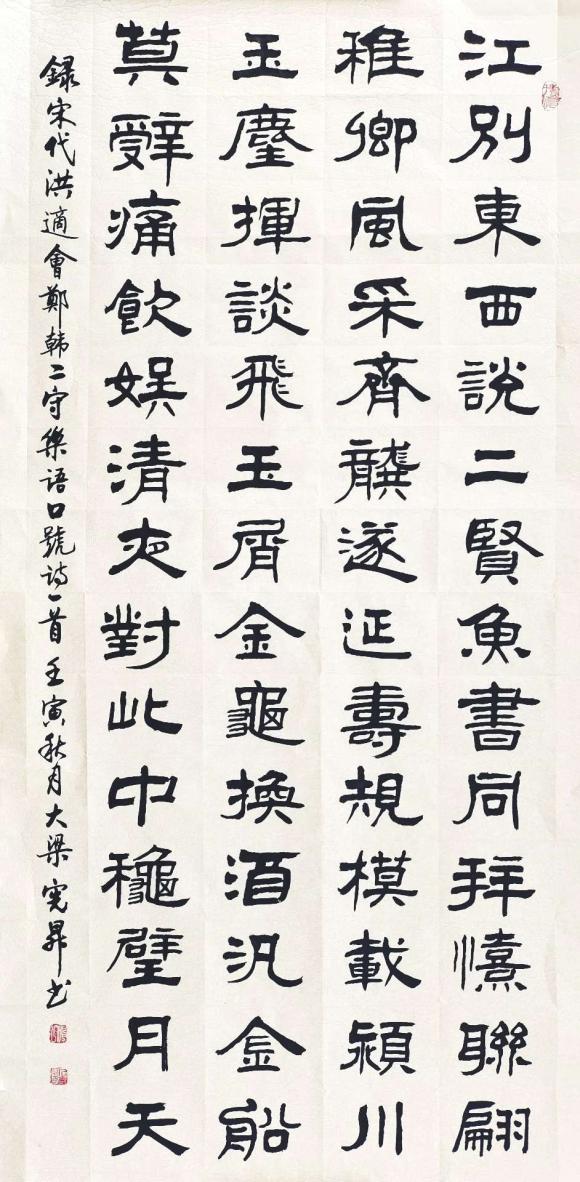 江別東西說二賢魚書同拜憘聯翩
稚卿風采齊龔遂延壽規模載潁川
玉麈揮談飛玉屑金龜換酒汎金船
莫辭痛飲娛清夜對此中龝璧月天
録宋代洪適會鄭韓二守樂語口號詩一首 壬寅秋月大梁昇书